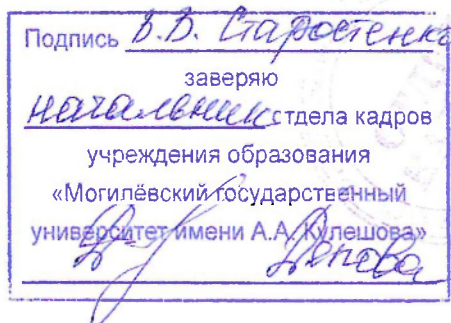 Подпись В.В. Старостенко
заверяю
начальник отдела кадров
учреждения образования
«Могилёвский государственный
университет имени А.А. Кулешова»